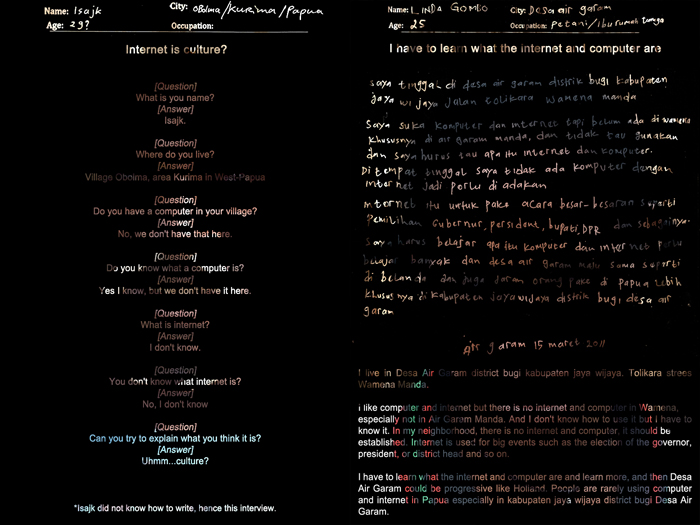 Name: Isajk City: oBolma/Kurima/Papua
Age: 29? Occupation:
Internet is culture?
[Question]
What is you name?
[Answer]
Isajk.
[Question]
Where do you live?
[Answer]
Village Oboima, area Kurima in West-Papua
[Question]
Do you have a computer in your village?
[Answer]
No, we don't have that here.
[Question]
Do you know what a computer is?
[Answer]
Yes I know, but we don't have it here.
[Question]
What is internet?
[Answer]
I don't know.
[Question]
You don't know what internet is?
[Answer]
No, I don't know
[Question]
Can you try to explain what you think it is?
[Answer]
Uhmm...culture?
*Isajk did not know how to write, hence this interview.
Name: LINDA GOMBO City: Desa air garam
Age: 25 Occupation: Petani/Iburumah tangga
I have to learn what the internet and computer are
saya tinggal di desa air garam distrik bugi kabupaten
jaya wijaya jalan tolikara wamena manda
saya suka komputer dan internet tapi belum ada di wamena
khususnya di air garam manda, dan tidak tau gunakan
dan saya harus tau apa itu internet dan komputer.
Di tempat tinggal saya tidak ada komputer dengan
internet jadi perlu di adakan
internet itu untuk pake acara besar-besaran seperti
Pemilihan Gubernur, persident, bupati, DPR dan sebagainya.
saya harus belajar apa itu komputer dan internet perlu
belajar banyak dan desa air garam maju sama seperti
di belanda dan juga jarang orang pake di papua lebih
khususnya di kabupaten jayawijaya distrik bugi desa air
garam
Air garam 15 maret 2011
I live in Desa Air Garam district bugi kabupaten jaya wijaya. Tolikara strees
Wamena Manda.
i like computer and internet but there is no internet and computer in Wamena,
especially not in Air Garam Manda. And I don't know how to use it but I have to
know it. In my neighborhood, there is no internet and computer, it should be
established. Internet is used for big events such as the election of the governor,
president, or district head and so on.
I have to learn what the internet and computer are and learn more, and then Desa
Air Garam could be progressive like Holland. People are rarely using computer
and internet in Papua especially in kabupaten jaya wijaya district bugi Desa Air
Garam.